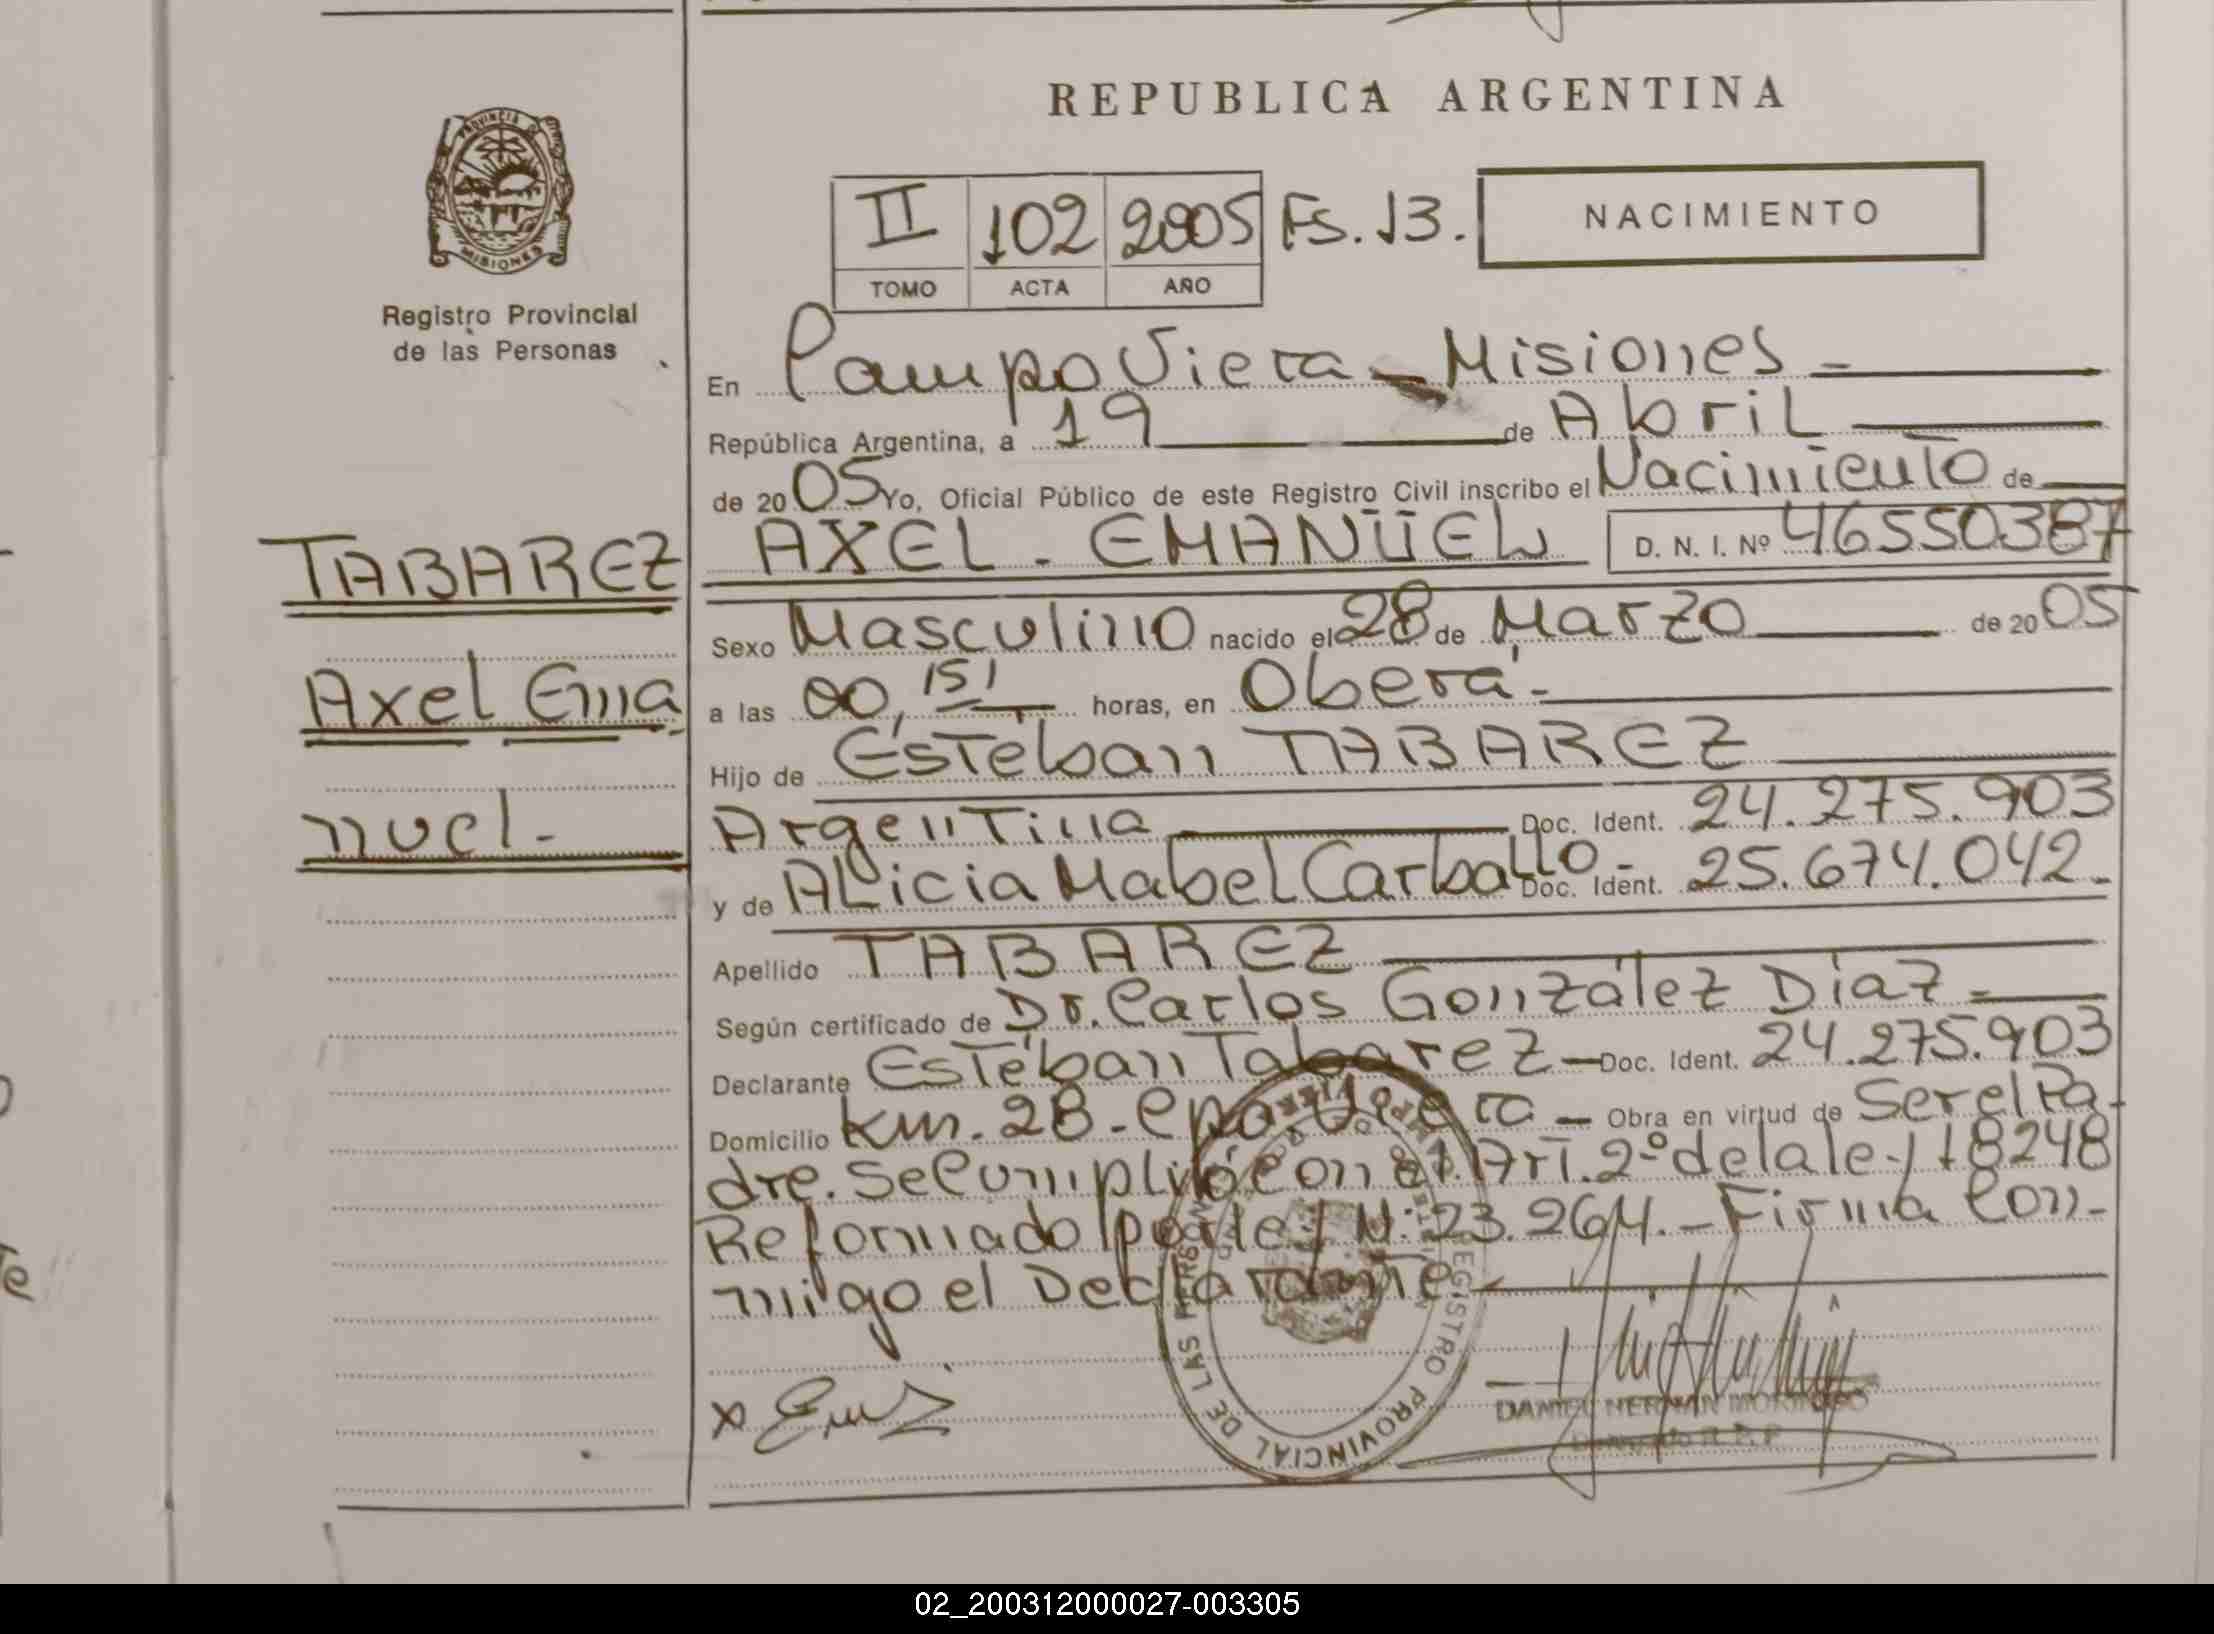 REPUBLICA ARGENTINA
PROVINCIA DE
MISIONES
Registro Provincial
de las Personas
II 102 2005 Fs. 13.
TOMO ACTA AÑO
NACIMIENTO
En Campo Viera - Misiones =
República Argentina, a 19 de Abril
de 2005 Yo, Oficial Público de este Registro Civil inscribo el Nacimiento de
TABAREZ
Axel Ema
nuel.-
AXEL - EMANUEL D. N. I. Nº 46550387
Sexo Masculino nacido el 28 de Marzo de 2005
a las 00,15' horas, en Oberá.-
Hijo de Esteban TABAREZ
Argentina Doc. Ident. 24.275.903
y de ALicia Mabel Carballo - Doc. Ident. 25.674.042.-
Apellido TABAREZ
Según certificado de Dr. Carlos González Díaz -
Declarante Esteban Tabarez - Doc. Ident. 24.275.903
Domicilio Km. 28 - Cpo. Viera - Obra en virtud de Ser el Pa-
dre. Se Cumplió con el Art. 2º de la ley 18248
Reformado por ley N: 23.264. - Firma Con-
migo el Declarante.
REGISTRO PROVINCIAL DE LAS PERSONAS
x
DANIEL HERNAN